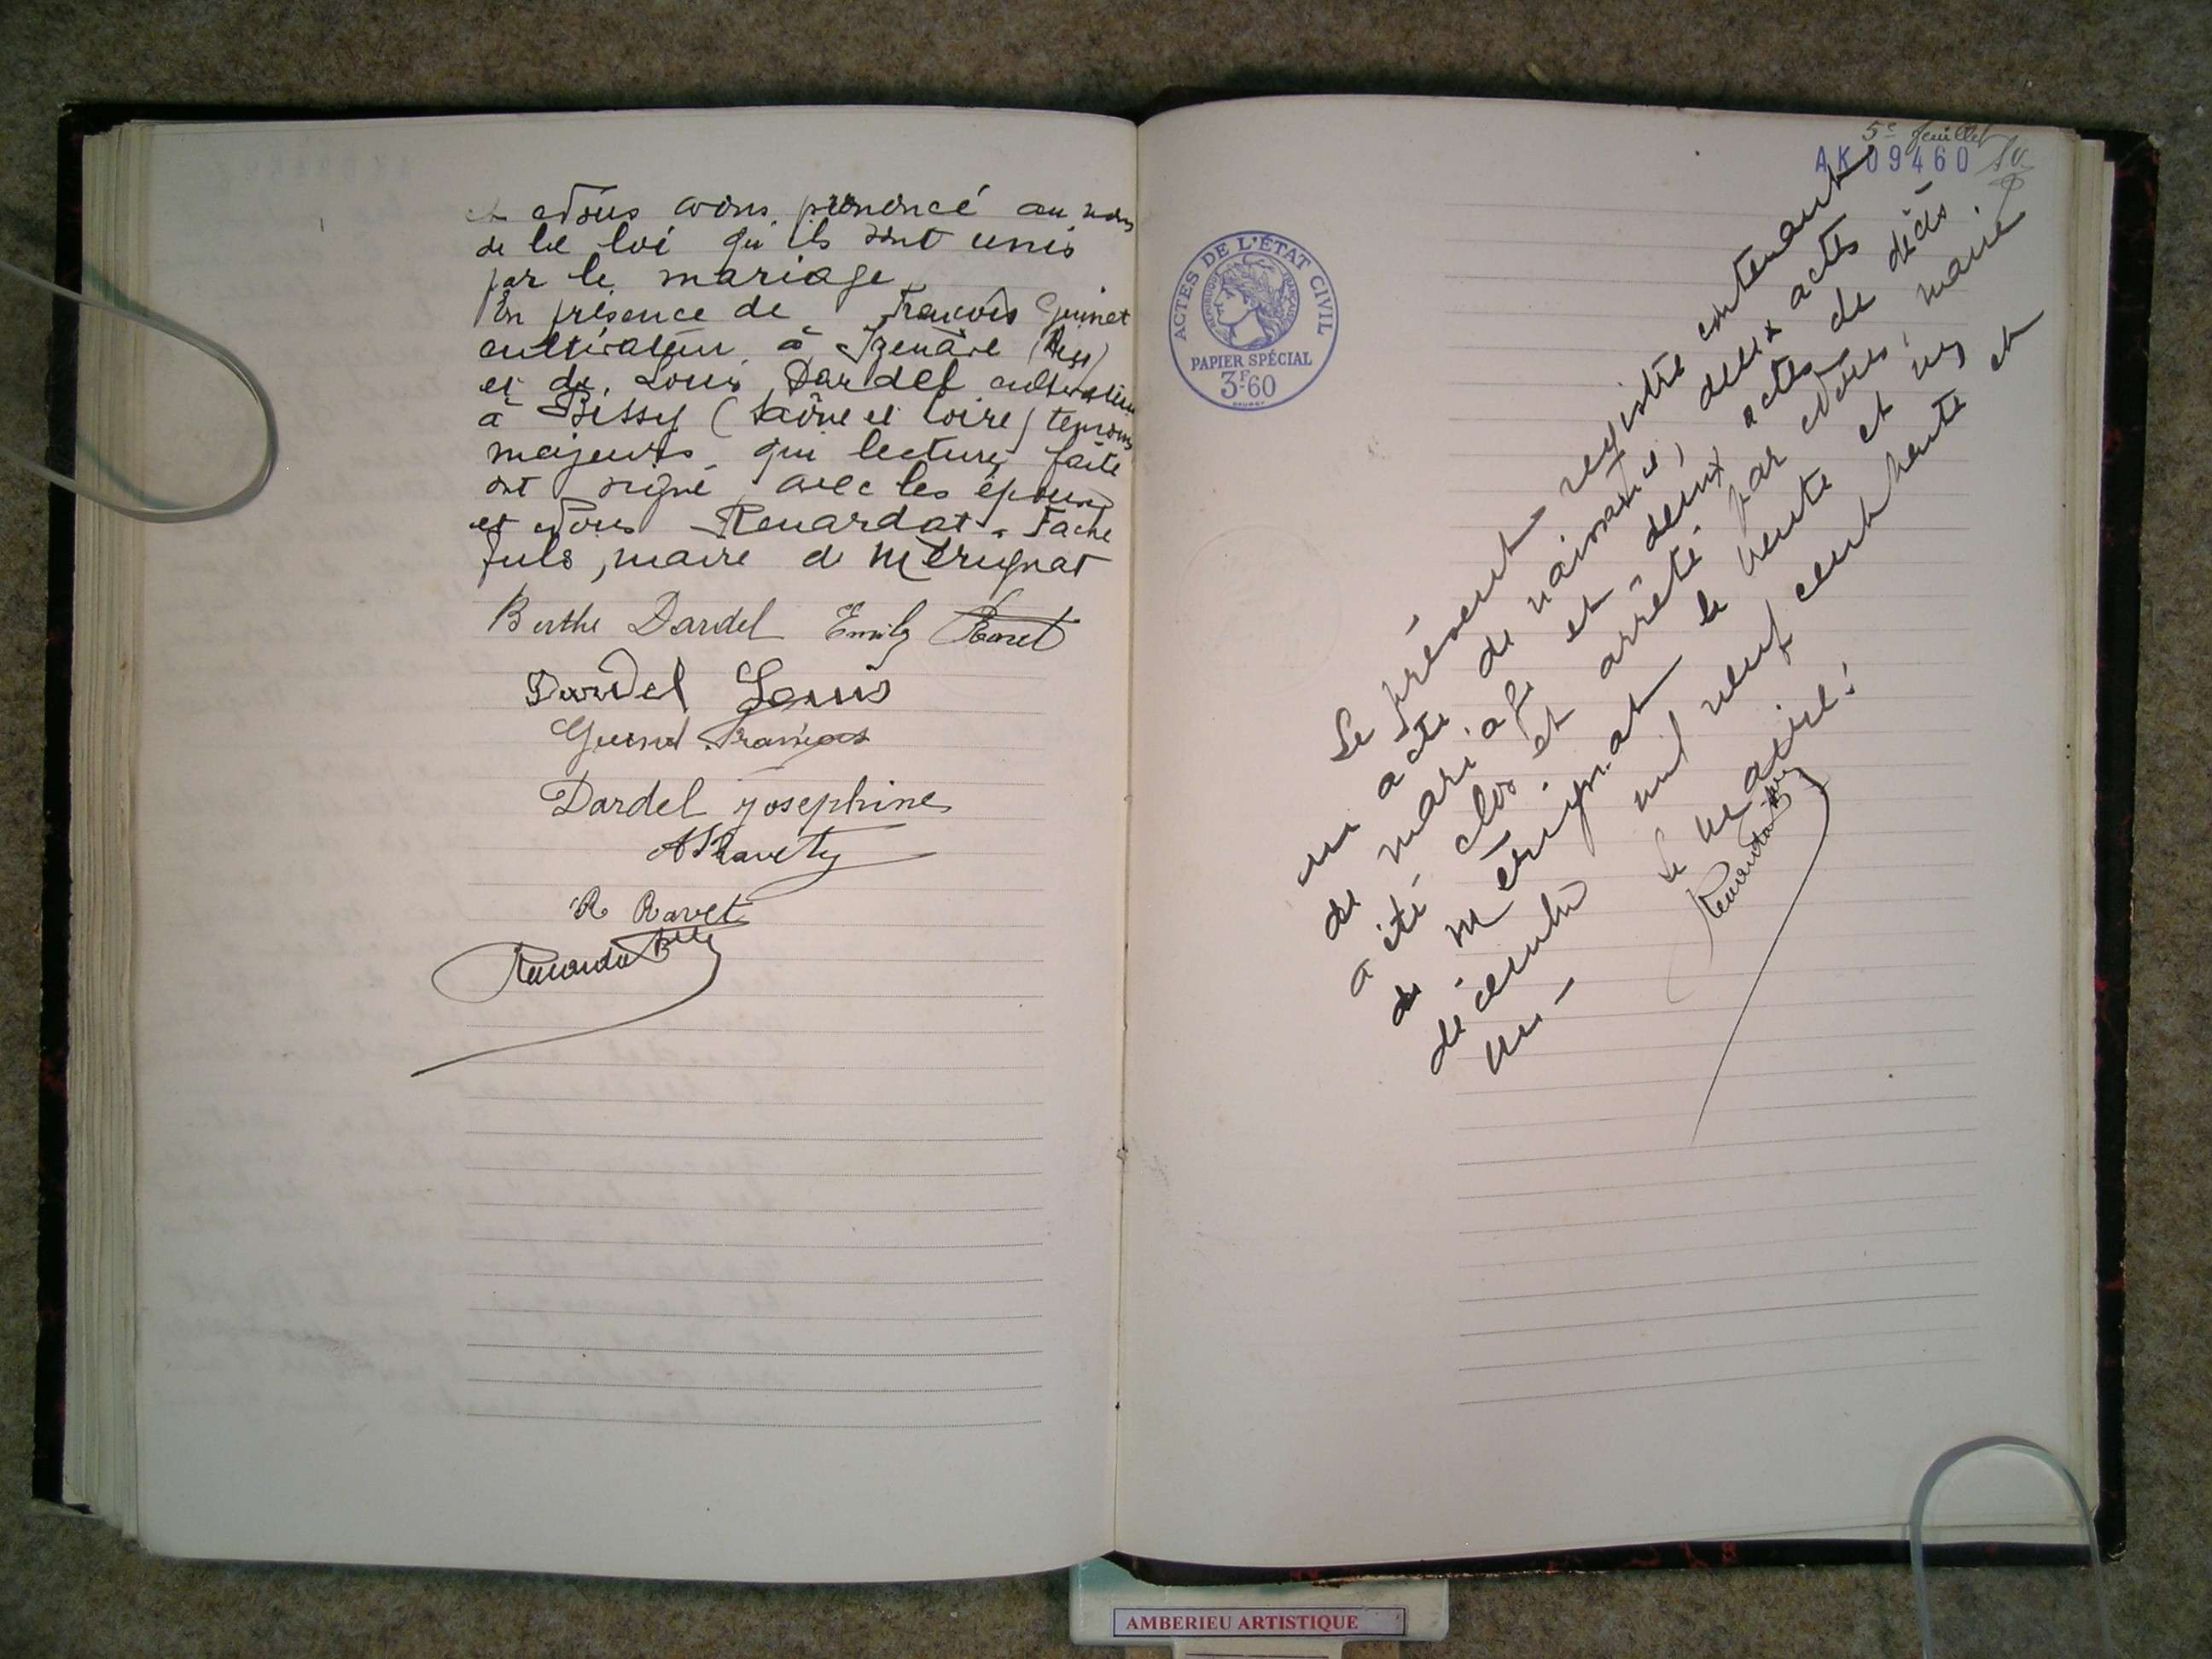 et Nous avons prononcé au nom
de la loi qu'ils sont unis
par le mariage
En présence de François Guinet
cultivateur à
et de Louis Dardel cultivateur
à Bissy (Saône et Loire) témoins
majeurs qui lecture faite
ont signé avec les époux
et Nous Renardat-Fache
Jules, maire de Mérignat
Berthe Dardel Emile Ravet
Dardel Louis
Guinet François
Dardel Josephine
A Ravety
R Ravet
Renardat
5e feuillet
AK 09460
ACTES DE L'ÉTAT CIVIL
RÉPUBLIQUE FRANÇAISE
PAPIER SPÉCIAL
3F.60
Le présent registre contenant
un acte de naissance, deux actes
de mariage et deux actes de décès
a été clos et arrêté par Nous, maire
de Mérignat le trente et un
décembre mil neuf cent trente et
un -
Le maire:
Renardat
AMBERIEU ARTISTIQUE